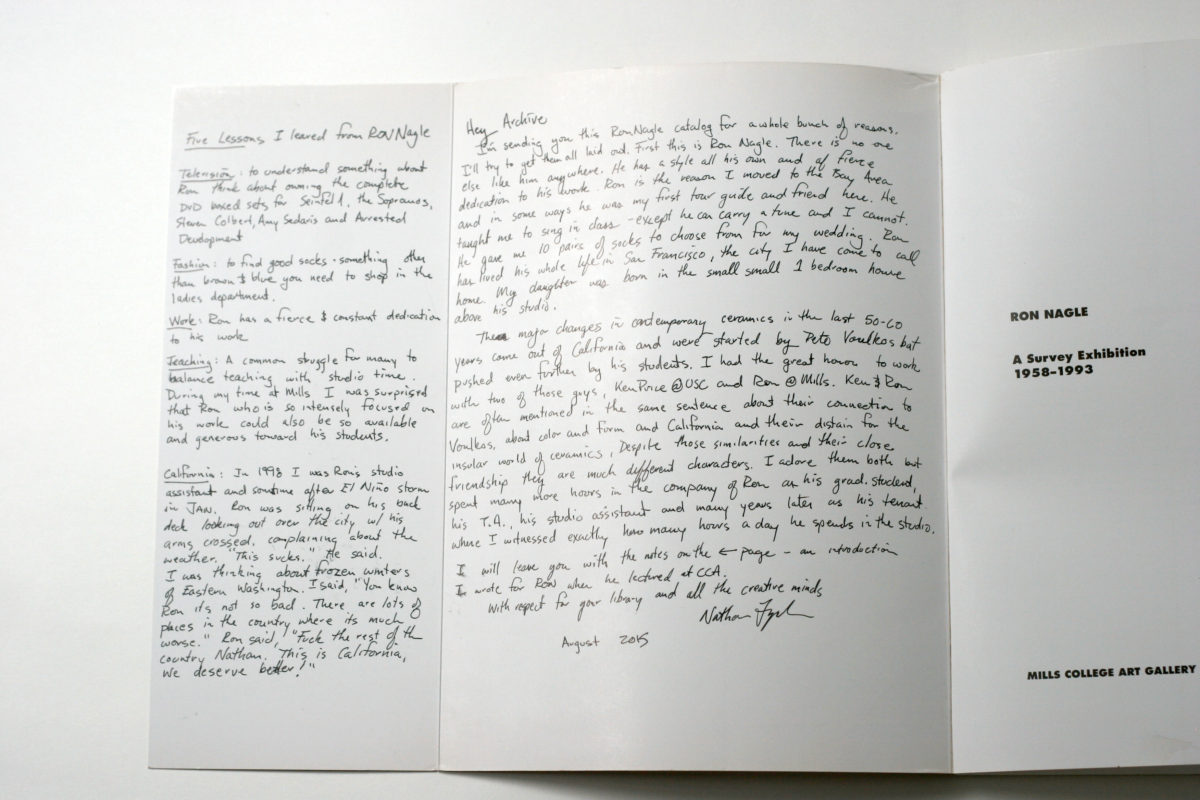 Five Lessons I leared from RON Nagle
Television : to understand something about
Ron think about owning the complete
DVD boxed sets for Seinfeld, the Sopranos,
Steven Colbert, Amy Sedaris and Arrested
Development
Fashion : to find good socks - something other
than brown & blue you need to shop in the
ladies department.
Work : Ron has a fierce & constant dedication
to his work
Teaching : A common struggle for many to
balance teaching with studio time.
During my time at Mills I was surprised
that Ron who is so intensely focused on
his work could also be so available
and generous toward his students.
California : In 1998 I was Ron's studio
assistant and sometime after El Niño storm
in JAN. Ron was sitting on his back
deck looking out over the city w/ his
arms crossed, complaining about the
weather. "This sucks." He said.
I was thinking about frozen winters
of Eastern Washington. I said, "You know
Ron its not so bad. There are lots of
places in the country where its much
worse." Ron said, "Fuck the rest of the
country Nathan. This is California,
we deserve better!"
Hey Archive
I'm sending you this Ron Nagle catalog for a whole bunch of reasons.
I'll try to get them all laid out. First this is Ron Nagle. There is no one
else like him anywhere. He has a style all his own and a fierce
dedication to his work. Ron is the reason I moved to the Bay Area
and in some ways he was my first tour guide and friend here. He
taught me to sing in class - except he can carry a tune and I cannot.
He gave me 10 pairs of socks to choose from for my wedding. Ron
has lived his whole life in San Francisco, the city I have come to call
home. My daughter was born in the small small 1 bedroom house
above his studio.
The major changes in contemporary ceramics in the last 50-60
years came out of California and were started by Pete Voulkos but
pushed even further by his students. I had the great honor to work
with two of those guys, Ken Price @ USC and Ron @ Mills. Ken & Ron
are often mentioned in the same sentence about their connection to
Voulkos, about color and form and California and their distain for the
insular world of ceramics. Despite those similarities and their close
friendship they are much different characters. I adore them both but
spent many more hours in the company of Ron as his grad. student,
his T.A., his studio assistant and many years later as his tenant
where I witnessed exactly how many hours a day he spends in the studio.
I will leave you with the notes on the ← page - an introduction
I wrote for Ron when he lectured at CCA.
With respect for your library and all the creative minds
Nathan
August 2015
RON NAGLE
A Survey Exhibition
1958-1993
MILLS COLLEGE ART GALLERY